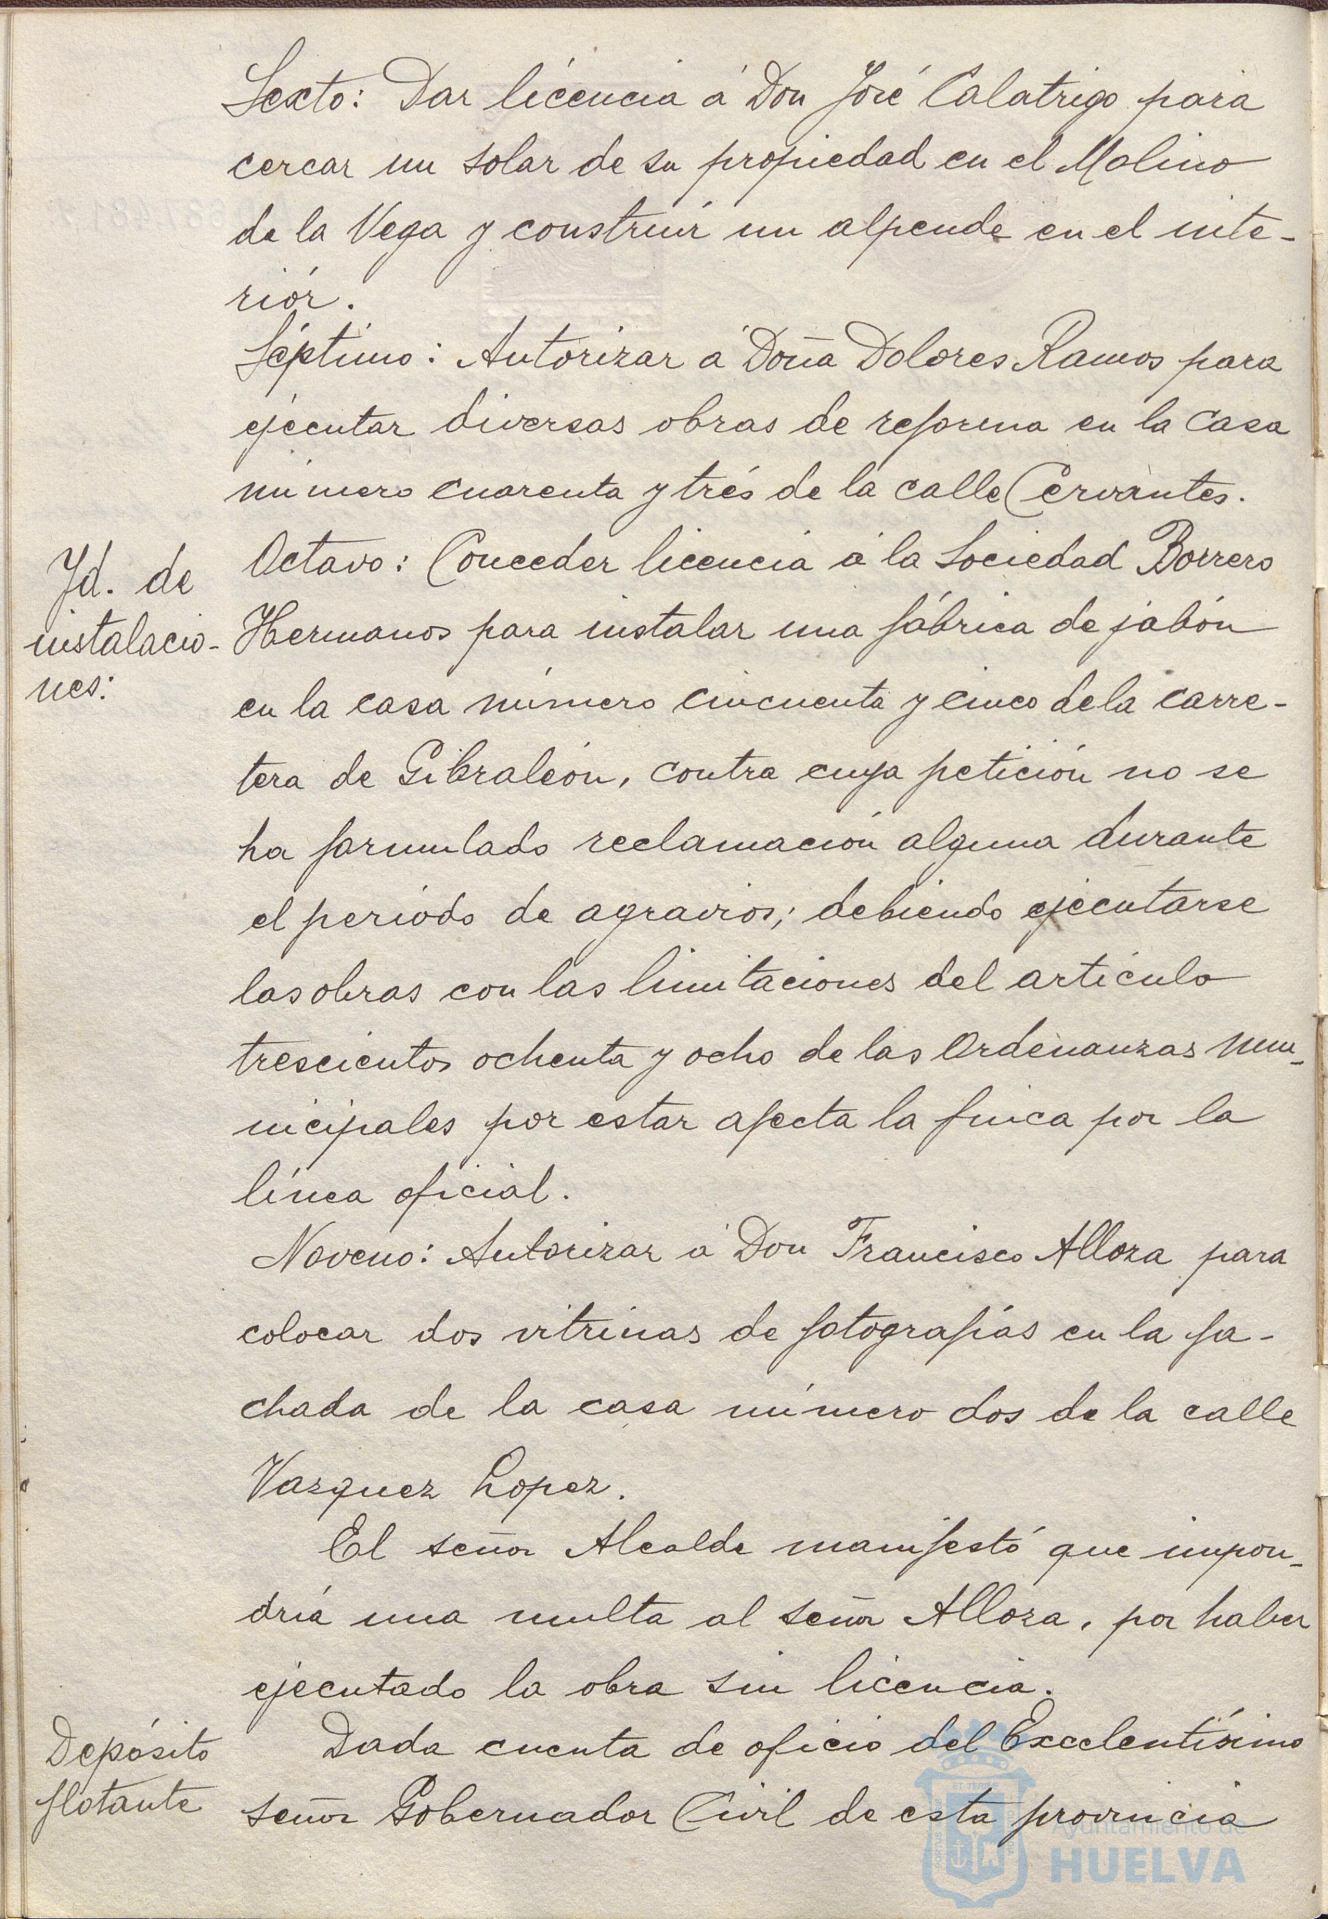 Sexto: Dar licencia á Don José Calatrigo para
cercar un solar de su propiedad en el Molino
de la Vega y construir un alpende en el inte-
riór.
Séptimo: Autorizar á Doña Dolores Ramos para
ejecutar diversas obras de reforma en la casa
número cuarenta y trés de la calle Cervantes.
Id. de
instalacio-
nes:
Octavo: Conceder licencia á la Sociedad Borrero
Hermanos para instalar una fábrica de jabón
en la casa número cincuenta y cinco de la carre-
tera de Gibraleón, contra cuya petición no se
ha formulado reclamación alguna durante
el periódo de agravios; debiendo ejecutarse
las obras con las limitaciones del artículo
trescientos ochenta y ocho de las Ordenanzas mu-
nicipales por estar afecta la finca por la
línea oficial.
Noveno: Autorizar á Don Francisco Alloza para
colocar dos vitrinas de fotografías en la fa-
chada de la casa número dos de la calle
Vazquez Lopez.
El señor Alcalde manifestó que impon-
dría una multa al señor Alloza, por haber
ejecutado la obra sin licencia.
Depósito
flotante
Dada cuenta de oficio del Excelentísimo
señor Gobernador Civil de esta provincia
Ayuntamiento de
HUELVA